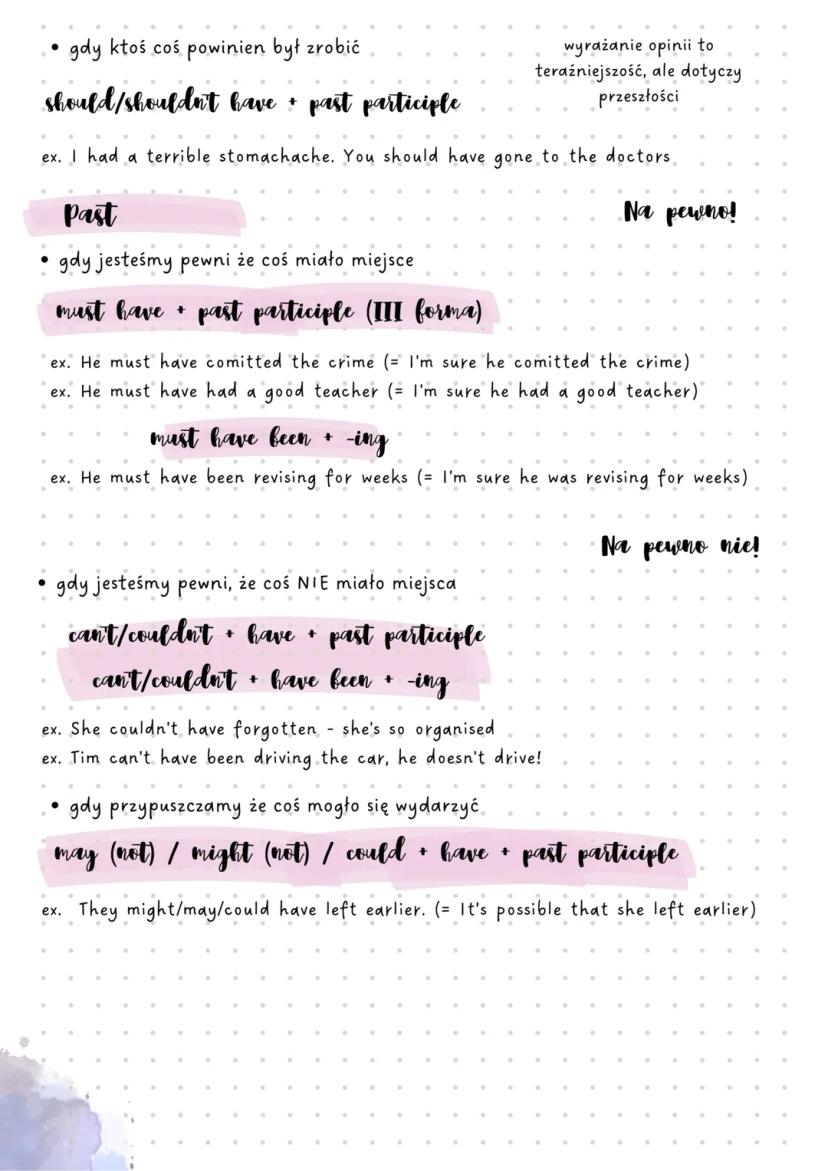 • gdy ktoś coś powinien był zrobić
wyrażanie opinii to
teraźniejszość, ale dotyczy
przeszłości
should/shouldn't have + past participle
ex. I had a terrible stomachache. You should have gone to the doctors
Past
Na pewno!
• gdy jesteśmy pewni że coś miało miejsce
must have + past participle (III forma)
ex. He must have comitted the crime (= I'm sure he comitted the crime)
ex. He must have had a good teacher (= I'm sure he had a good teacher)
must have been + -ing
ex. He must have been revising for weeks (= I'm sure he was revising for weeks)
Na pewno nie!
• gdy jesteśmy pewni, że coś NIE miało miejsca
can't/couldn't + have + past participle
can't/couldn't + have been + -ing
ex. She couldn't have forgotten - she's so organised
ex. Tim can't have been driving the car, he doesn't drive!
• gdy przypuszczamy że coś mogło się wydarzyć
may (not) / might (not) / could + have + past participle
ex. They might/may/could have left earlier. (= It's possible that she left earlier)